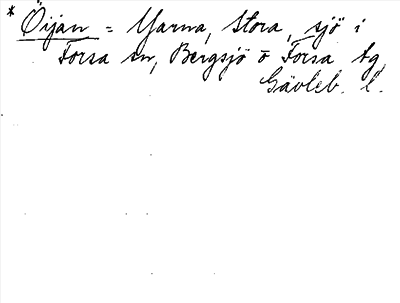 * Öijan = Yarna, Stora, sjö i
Forsa sn, Bergsjö o Forsa tg,
Gävleb. l.